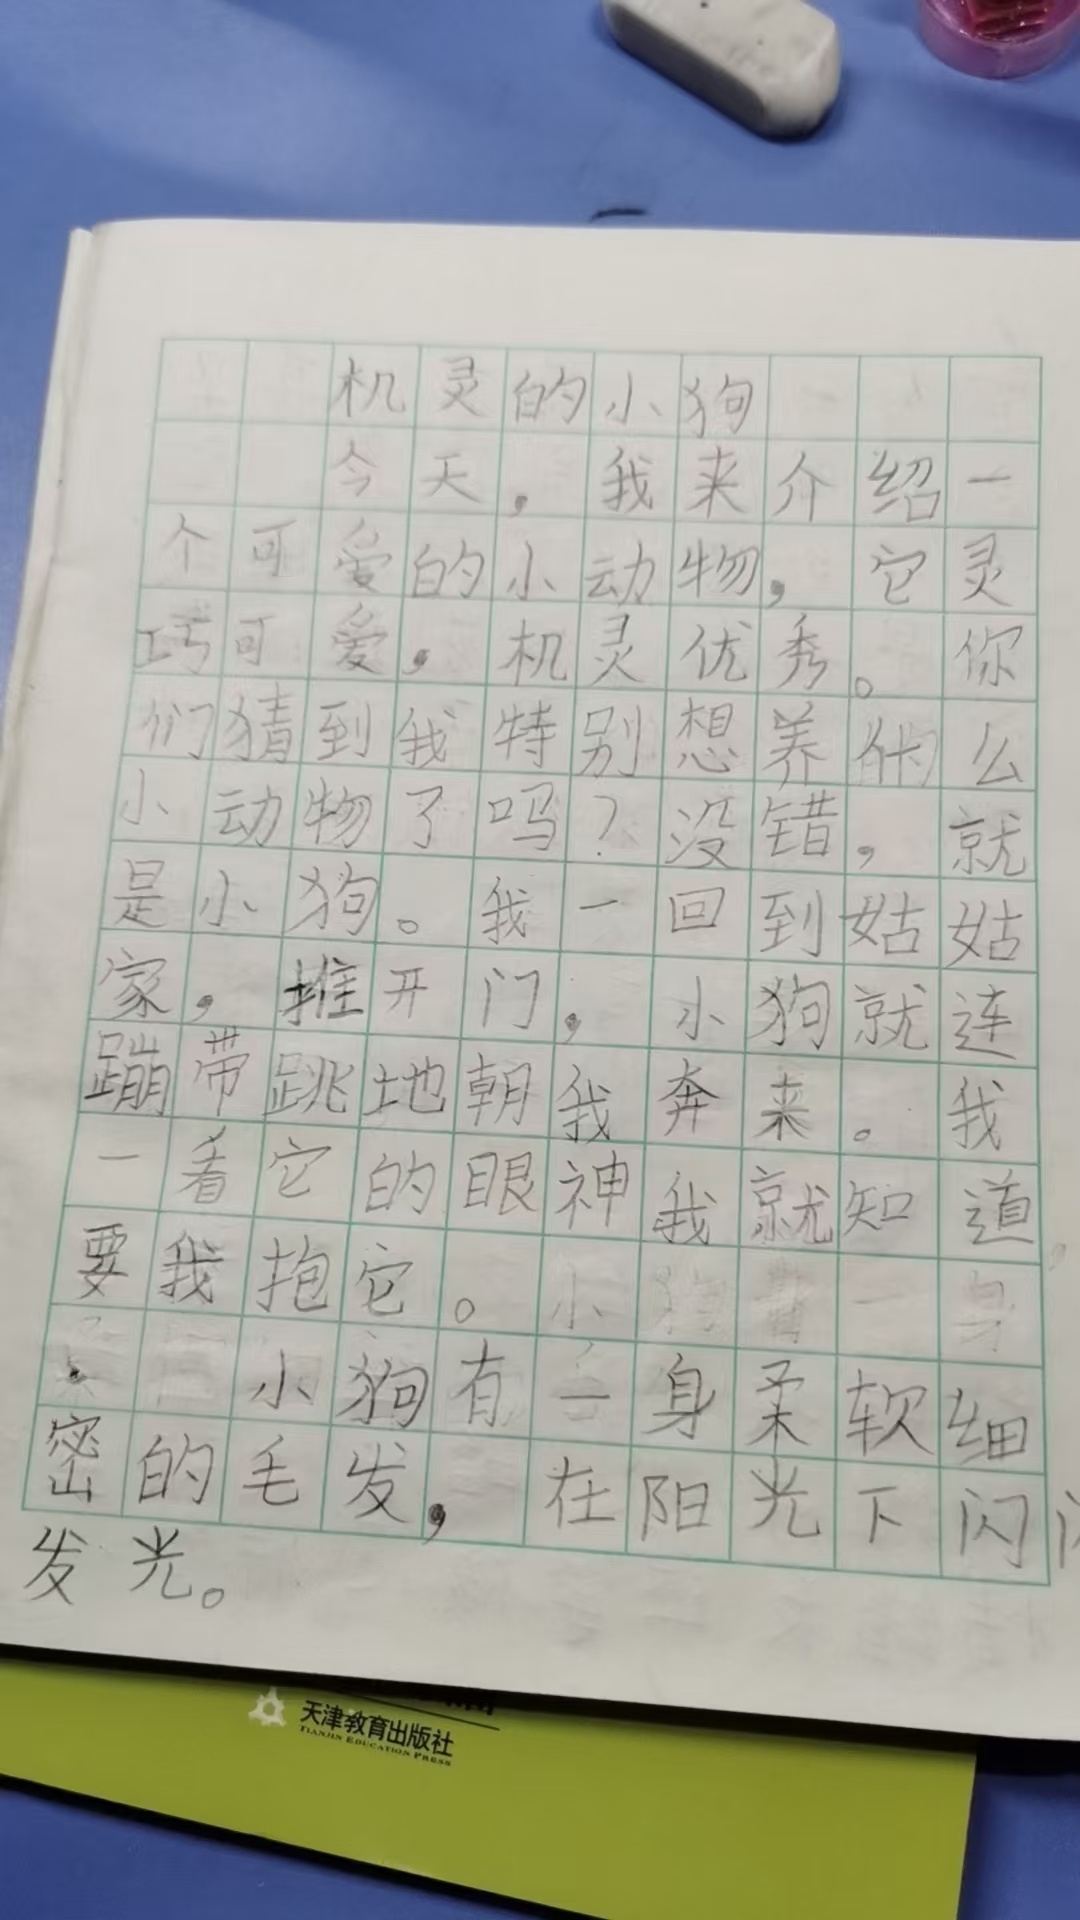 机灵的小狗
今天，我来介绍一
个可爱的小动物，它灵
巧可爱，机灵优秀。你
们猜到我特别想养什么
小动物了吗？没错，就
是小狗。我一回到姑姑
家，推开门，小狗就连
蹦带跳地朝我奔来。我
一看它的眼神我就知道
要我抱它。
小狗有一身柔软细
密的毛发，在阳光下闪闪
发光。
天津教育出版社
TIANJIN EDUCATION PRESS